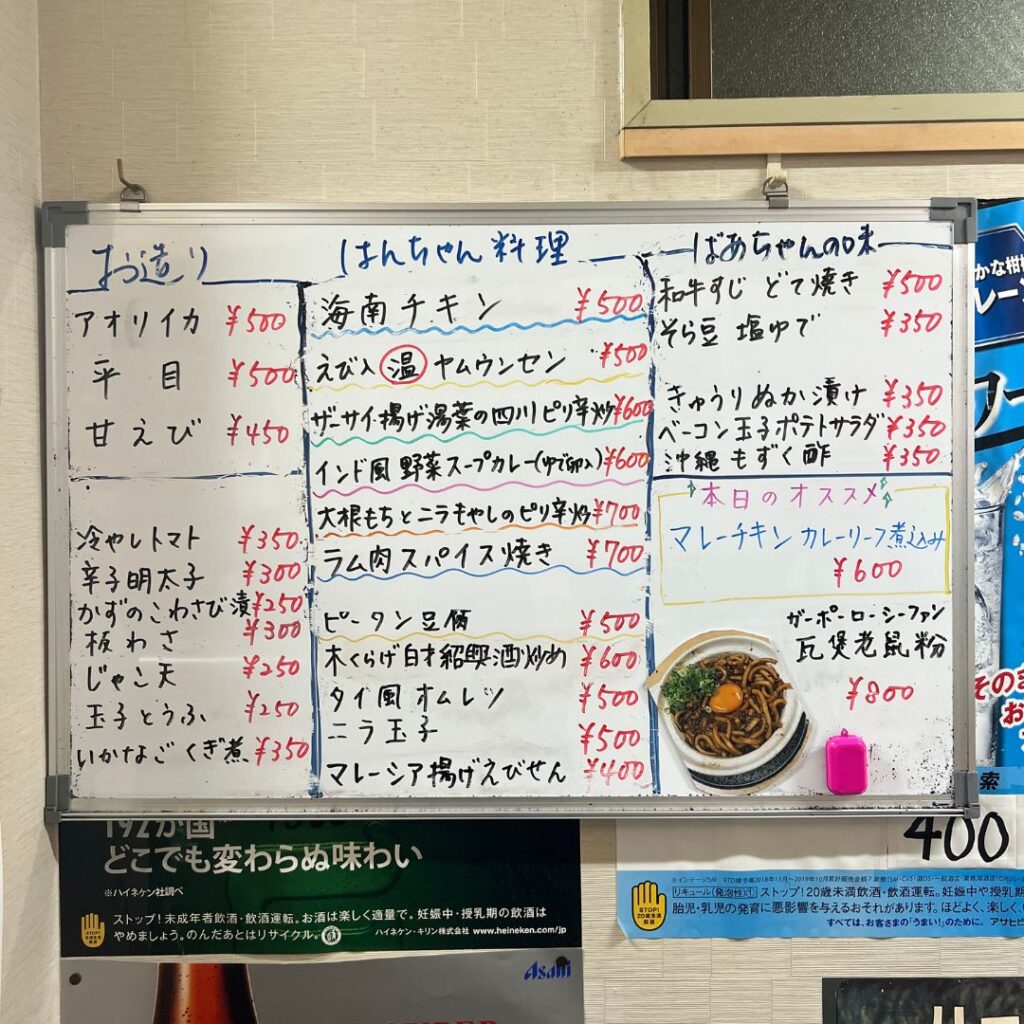 お造り
アオリイカ ¥500
平目 ¥500
甘えび ¥450
冷やしトマト ¥350
辛子明太子 ¥300
かずのこわさび漬 ¥250
板わさ ¥300
じゃこ天 ¥250
玉子とうふ ¥250
いかなごくぎ煮 ¥350
はんちゃん料理
海南チキン ¥500
えび入 温 ヤムウンセン ¥500
ザーサイ・揚げ湯葉の四川ピリ辛炒 ¥600
インド風 野菜スープカレー(ゆで卵入) ¥600
大根もちとニラもやしのピリ辛炒 ¥700
ラム肉スパイス焼き ¥700
ピータン豆腐 ¥500
木くらげ白才紹興酒炒め ¥600
タイ風オムレツ ¥500
ニラ玉子 ¥500
マレーシア揚げえびせん ¥400
ばあちゃんの味
和牛すじ どて焼き ¥500
そら豆 塩ゆで ¥350
きゅうりぬか漬け ¥350
ベーコン玉子ポテトサラダ ¥350
沖縄もずく酢 ¥350
本日のオススメ
マレーチキン カレーリーフ煮込み
¥600
ガーポーローシーファン
瓦煲老鼠粉
¥800
かな柑
レーン
その
お
索
400
192か国
どこでも変わらぬ味わい
※ハイネケン社調べ
STOP!
ストップ!未成年者飲酒・飲酒運転。お酒は楽しく適量で。妊娠中・授乳期の飲酒は
やめましょう。のんだあとはリサイクル。 ハイネケン・キリン株式会社 www.heineken.com/jp
Asahi
STOP!
20歳未満
飲酒
リキュール(発泡性)① ストップ!20歳未満飲酒・飲酒運転。妊娠中や授乳期
胎児・乳児の発育に悪影響を与えるおそれがあります。ほどよく、楽しく、
すべては、お客さまの「うまい!」のために。 アサヒビ